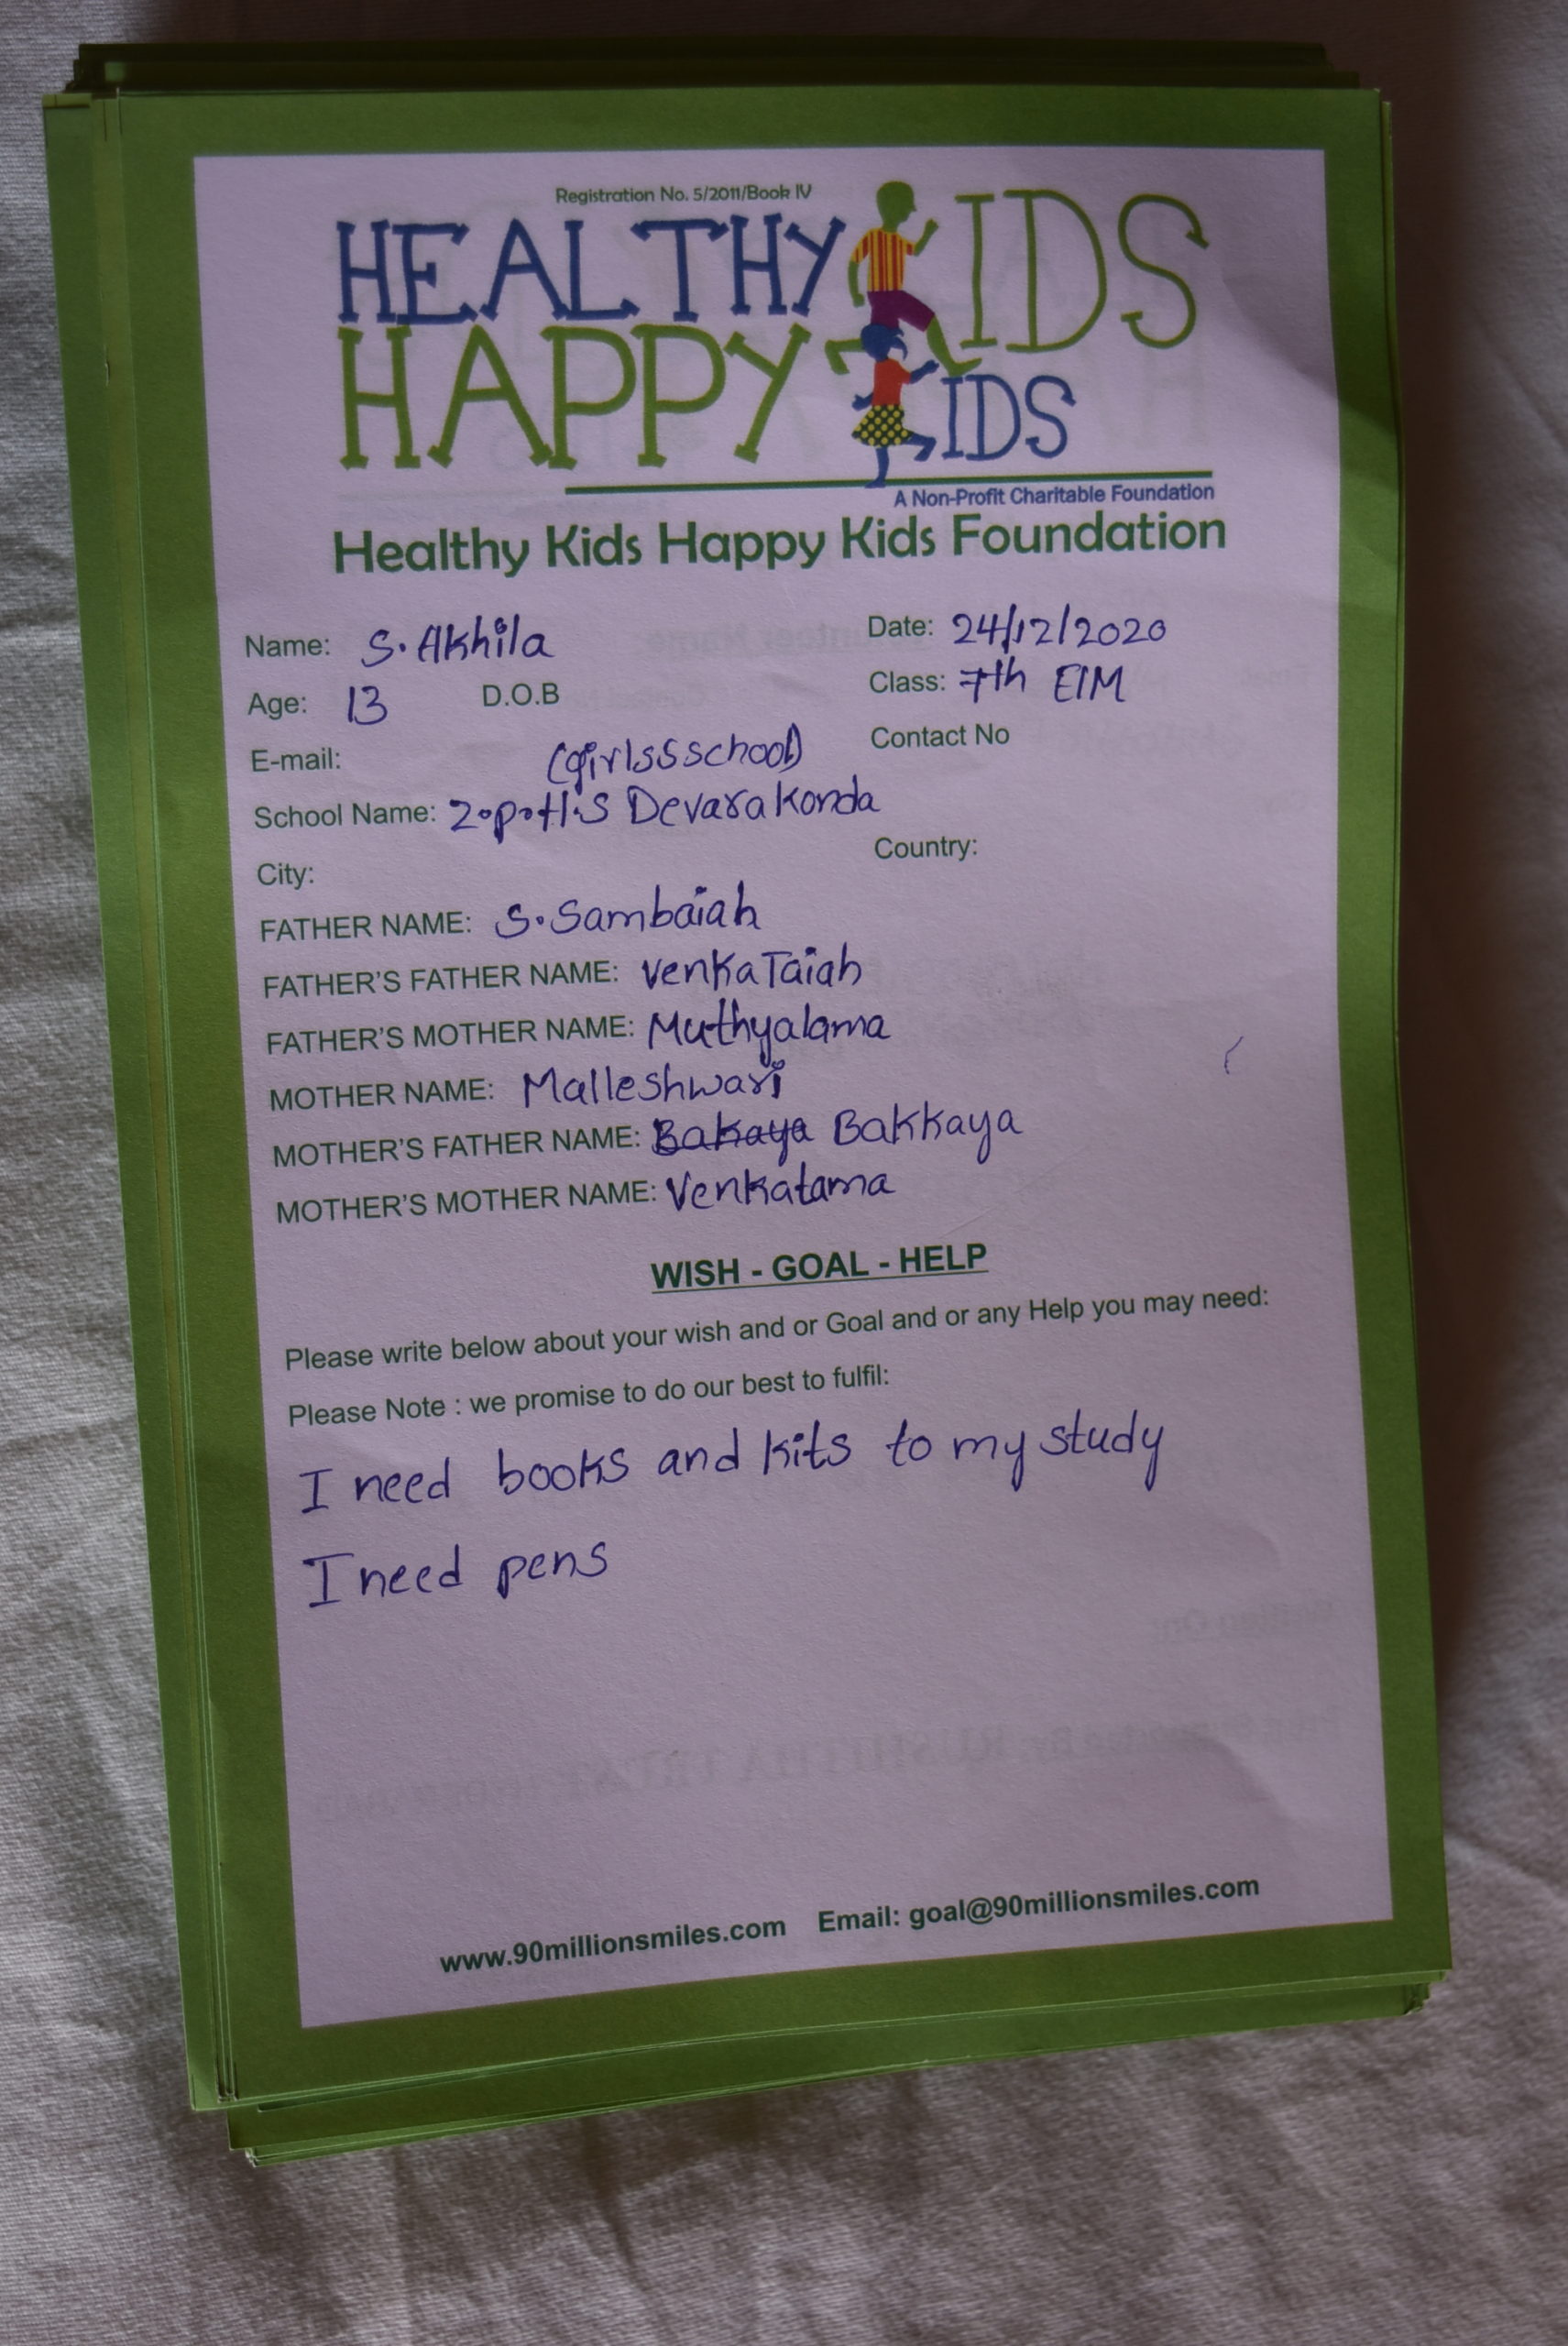 Registration No. 5/2011/Book IV
HEALTHY KIDS
HAPPY KIDS
A Non-Profit Charitable Foundation
Healthy Kids Happy Kids Foundation
Name: S. Akhila Date: 24/12/2020
Age: 13 D.O.B Class: 7th E/M
E-mail: (girlsSschool) Contact No
School Name: Z.p.H.S Devarakonda
City: Country:
FATHER NAME: S. Sambaiah
FATHER'S FATHER NAME: VenkaTaiah
FATHER'S MOTHER NAME: Muthyalama
MOTHER NAME: Malleshwari
MOTHER'S FATHER NAME: Bakaya Bakkaya
MOTHER'S MOTHER NAME: Venkatama
WISH - GOAL - HELP
Please write below about your wish and or Goal and or any Help you may need:
Please Note : we promise to do our best to fulfil:
I need books and kits to my study
I need pens
www.90millionsmiles.com Email: goal@90millionsmiles.com